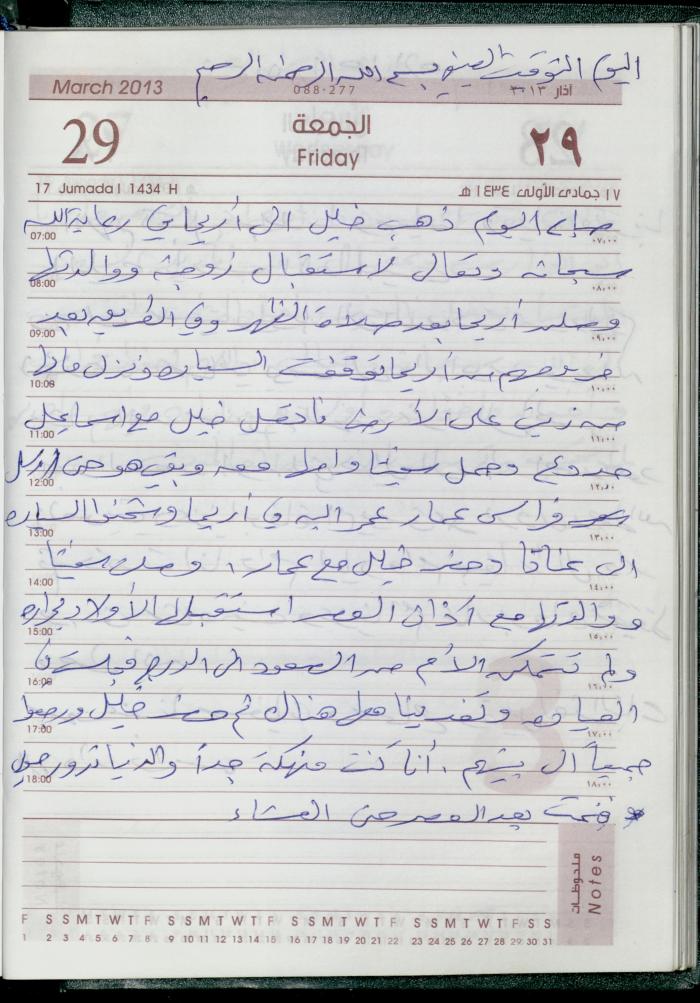 اليوم التوقيت الصيفي بسم الله الرحمن الرحيم
March 2013 088-277 آذار ٢٠١٣
29 الجمعة Friday ٢٩
17 Jumada I 1434 H ١٧ جمادى الأولى ١٤٣٤ هـ
صباح اليوم ذهب خليل الى أريحا في رعاية الله
07:00 ٠٧,٠٠
سبحانه وتعالى لاستقبال زوجته ووالدتها
08:00 ٠٨,٠٠
وصلن أريحا بعد صلاة الظهر وفي الطريق بعد
09:00 ٠٩,٠٠
خروجهم من أريحا توقفت السياره ونزل ماؤها
10:00 ١٠,٠٠
من زيت على الأرض فاتصل خليل مع اسماعيل
11:00 ١١,٠٠
وحمل وامها معه وبقي هو حتى ارسل
12:00 ١٢,٠٠
فراس عمار عمر اليه في أريحا وشحنوا السياره
13:00 ١٣,٠٠
الى عناتا وحضر خليل مع عمار، وصلن
14:00 ١٤,٠٠
ووالدتها مع اذان العصر استقبلها الأولاد بحراره
15:00 ١٥,٠٠
ولم تتمكن الأم من الصعود الى الدرج فجلسنا في
16:00 ١٦,٠٠
المضافه وتغدينا معا هناك ثم حضر خليل ورجعوا
17:00 ١٧,٠٠
جميعاً الى بيتهم. أنا كنت منهكة جداً والدنيا تدور حولي
18:00 ١٨,٠٠
فنمت بعد العصر حتى العشاء
ملحوظات Notes
F S S M T W T F S S M T W T F S S M T W T F S S M T W T F S S
1 2 3 4 5 6 7 8 9 10 11 12 13 14 15 16 17 18 19 20 21 22 23 24 25 26 27 28 29 30 31